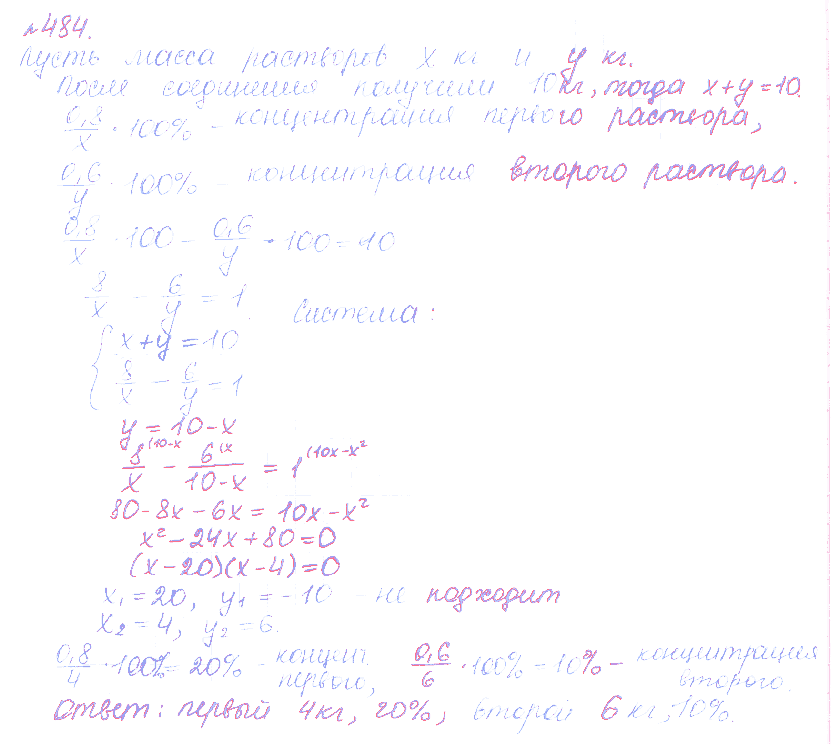 №484.
Пусть масса растворов x кг и y кг.
После соединения получили 10 кг, тогда x+y=10.
0,8/x · 100% - концентрация первого раствора,
0,6/y · 100% - концентрация второго раствора.
0,8/x · 100 - 0,6/y · 100 = 10
8/x - 6/y = 1. Система:
{ x+y=10
8/x - 6/y - 1
y = 10-x
8/x (10-x - 6/(10-x) (x = 1 (10x-x²
80-8x-6x = 10x-x²
x²-24x+80=0
(x-20)(x-4)=0
x₁=20, y₁=-10 - не подходит
x₂=4, y₂=6.
0,8/4 · 100% = 20% - концент. первого, 0,6/6 · 100% = 10% - концентрация второго.
Ответ: первый 4кг, 20%, второй 6 кг, 10%.